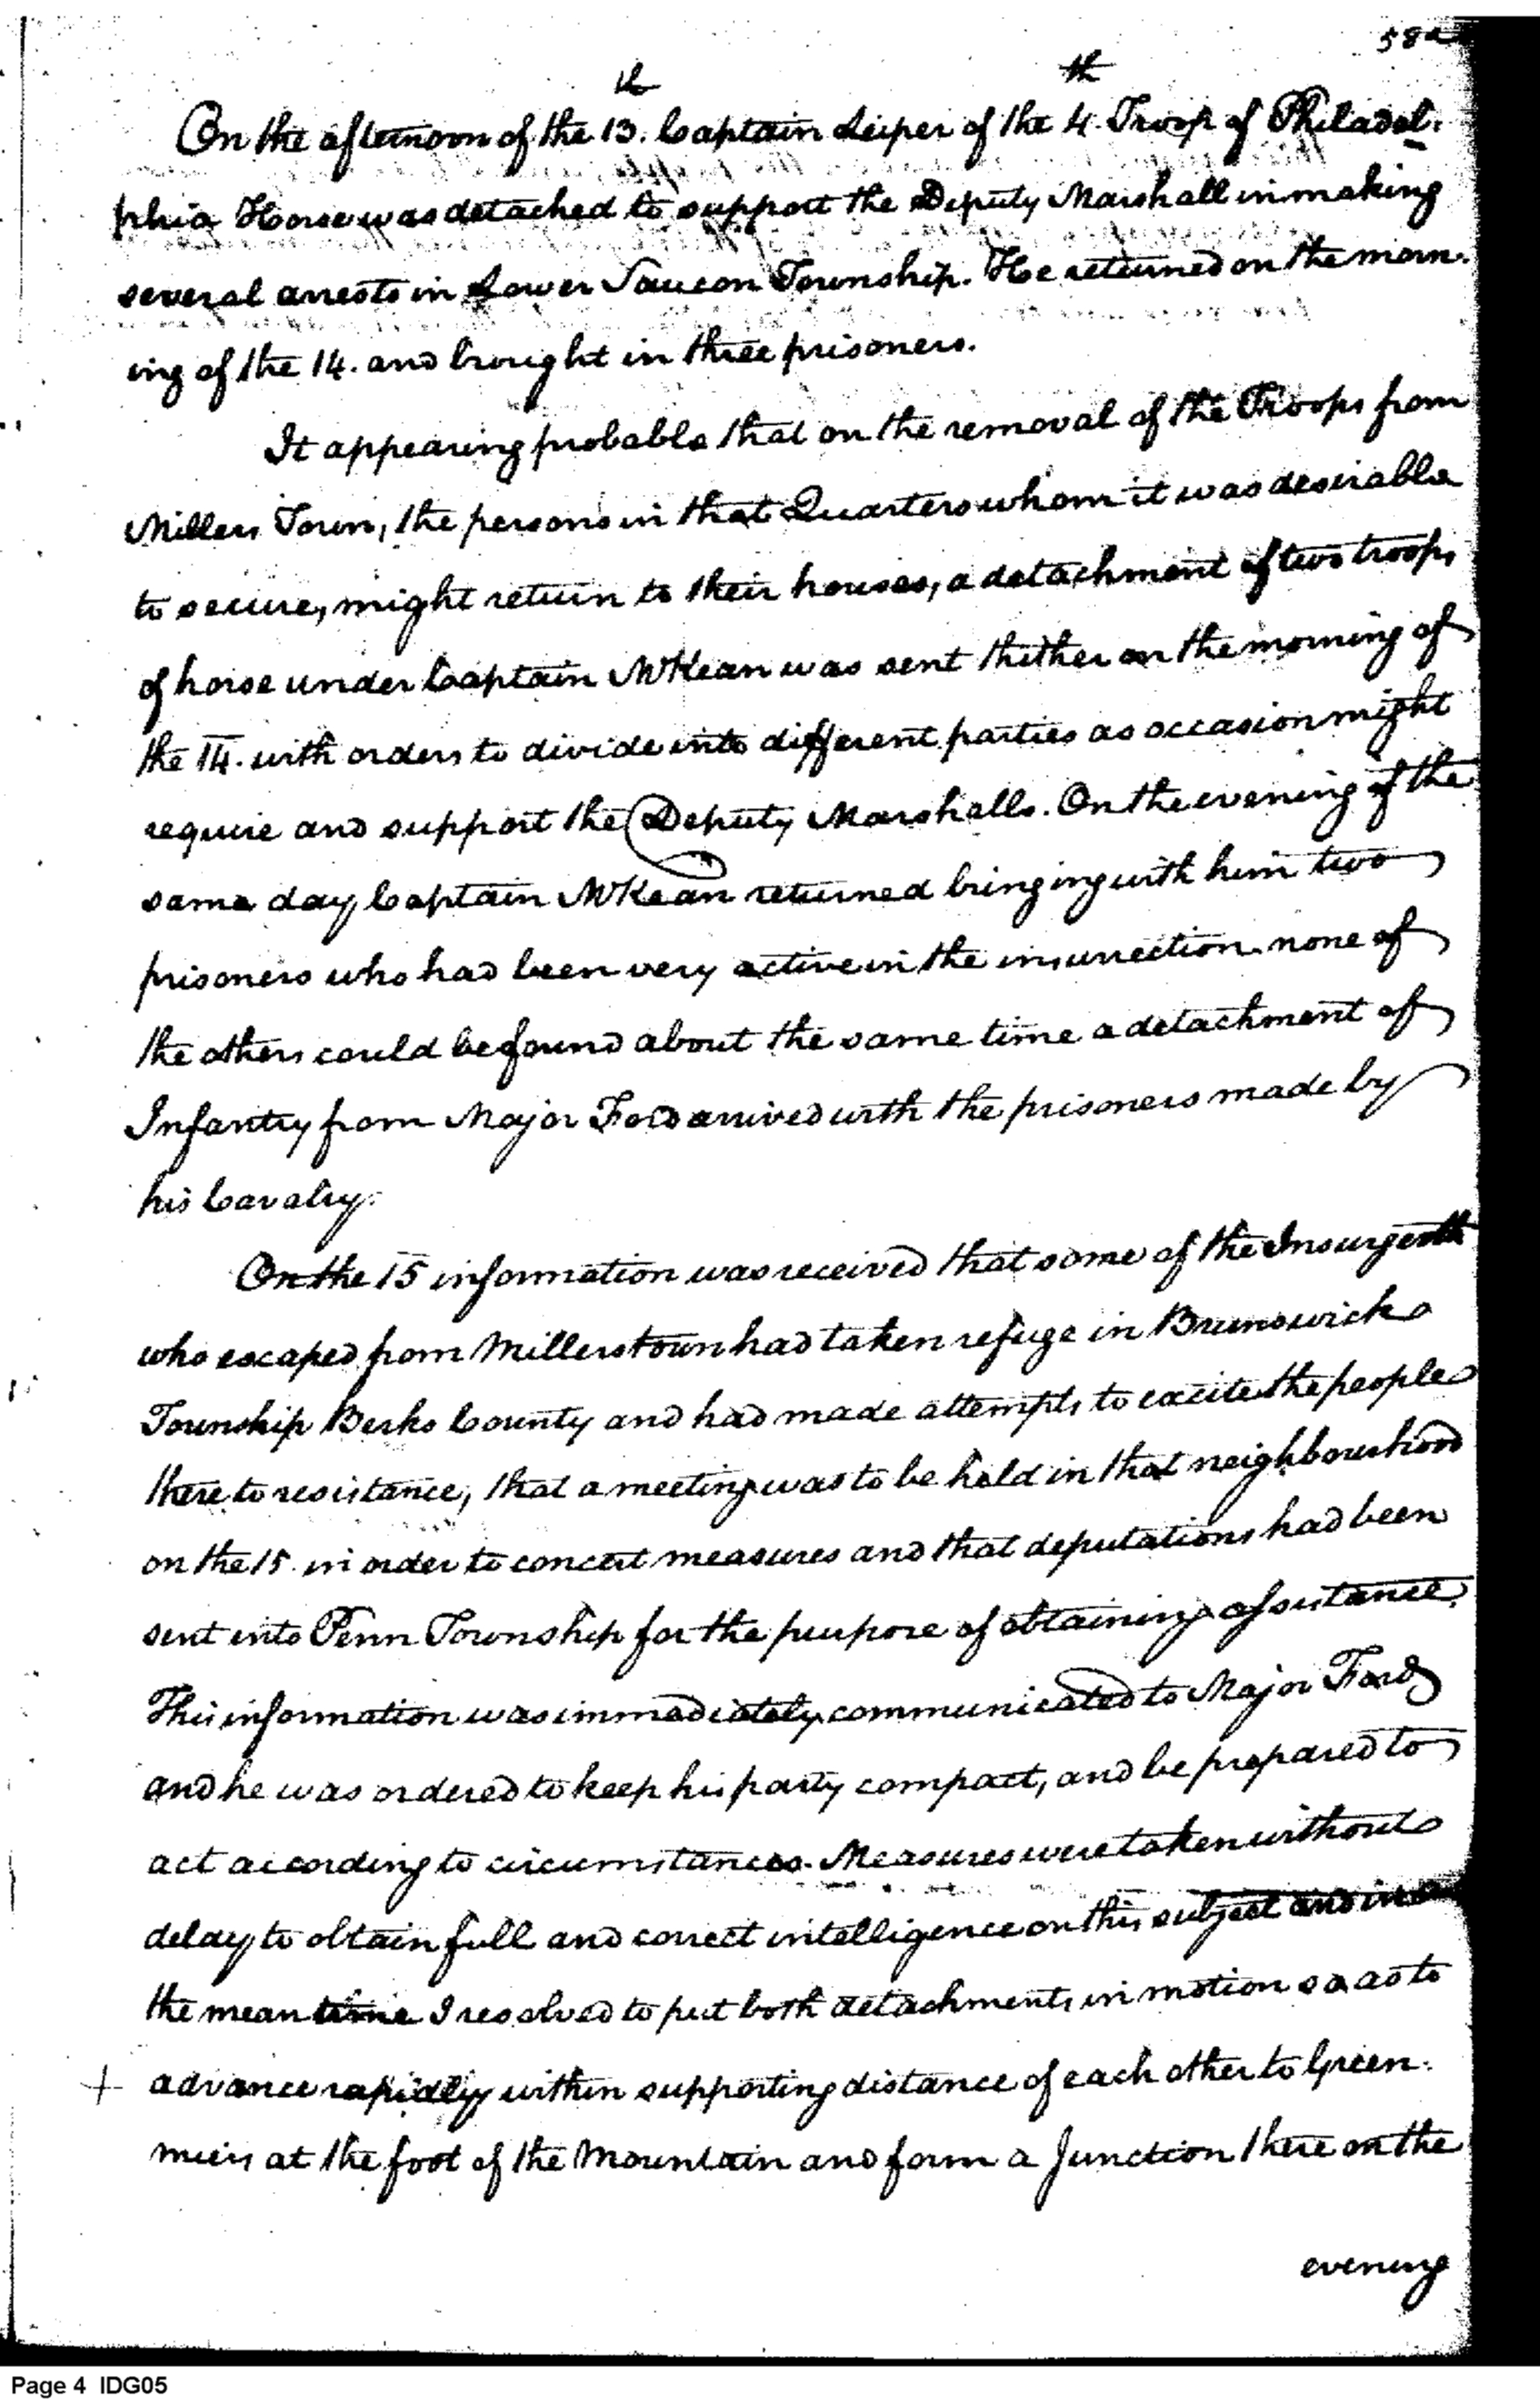 58a
On the afternoon of the 13.th Captain Leiper of the 4.th Troop of Philadel.
phia Horse was detached to support the Deputy Marshall in making
several arrests in Lower Saucon Township. He returned on the morn.
ing of the 14. and brought in three prisoners.
It appearing probable that on the removal of the Troops from
Millers Town, the persons in that Quarters whom it was desirable
to secure, might return to their houses, a detachment of two troops
of horse under Captain McKean was sent thither on the morning of
the 14. with orders to divide into different parties as occasion might
require and support the Deputy Marshalls. On the evening of the
same day Captain McKean returned bringing with him two
prisoners who had been very active in the insurrection none of
the others could be found about the same time a detachment of
Infantry from Major Ford arrived with the prisoners made by
his Cavalry.
On the 15 information was received that some of the Insurgents
who escaped from Millerstown had taken refuge in Brunswick
Township Berks County and had made attempts to excite the people
there to resistance, that a meeting was to be held in that neighbourhood
on the 15. in order to concert measures and that deputations had been
sent into Penn Township for the purpose of obtaining assistance.
This information was immediately communicated to Major Ford
and he was ordered to keep his party compact, and be prepared to
act according to circumstances. Measures were taken without
delay to obtain full and correct intelligence on this subject and in
the mean time I resolved to put both detachments in motion so as to
+ advance rapidly within supporting distance of each other to Green.
miers at the foot of the Mountain and form a Junction there on the
evening
Page 4 IDG05